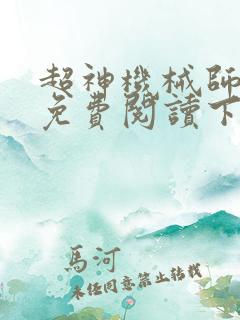 超神機械師
免費閱讀下
馬河
未经同意禁止转载